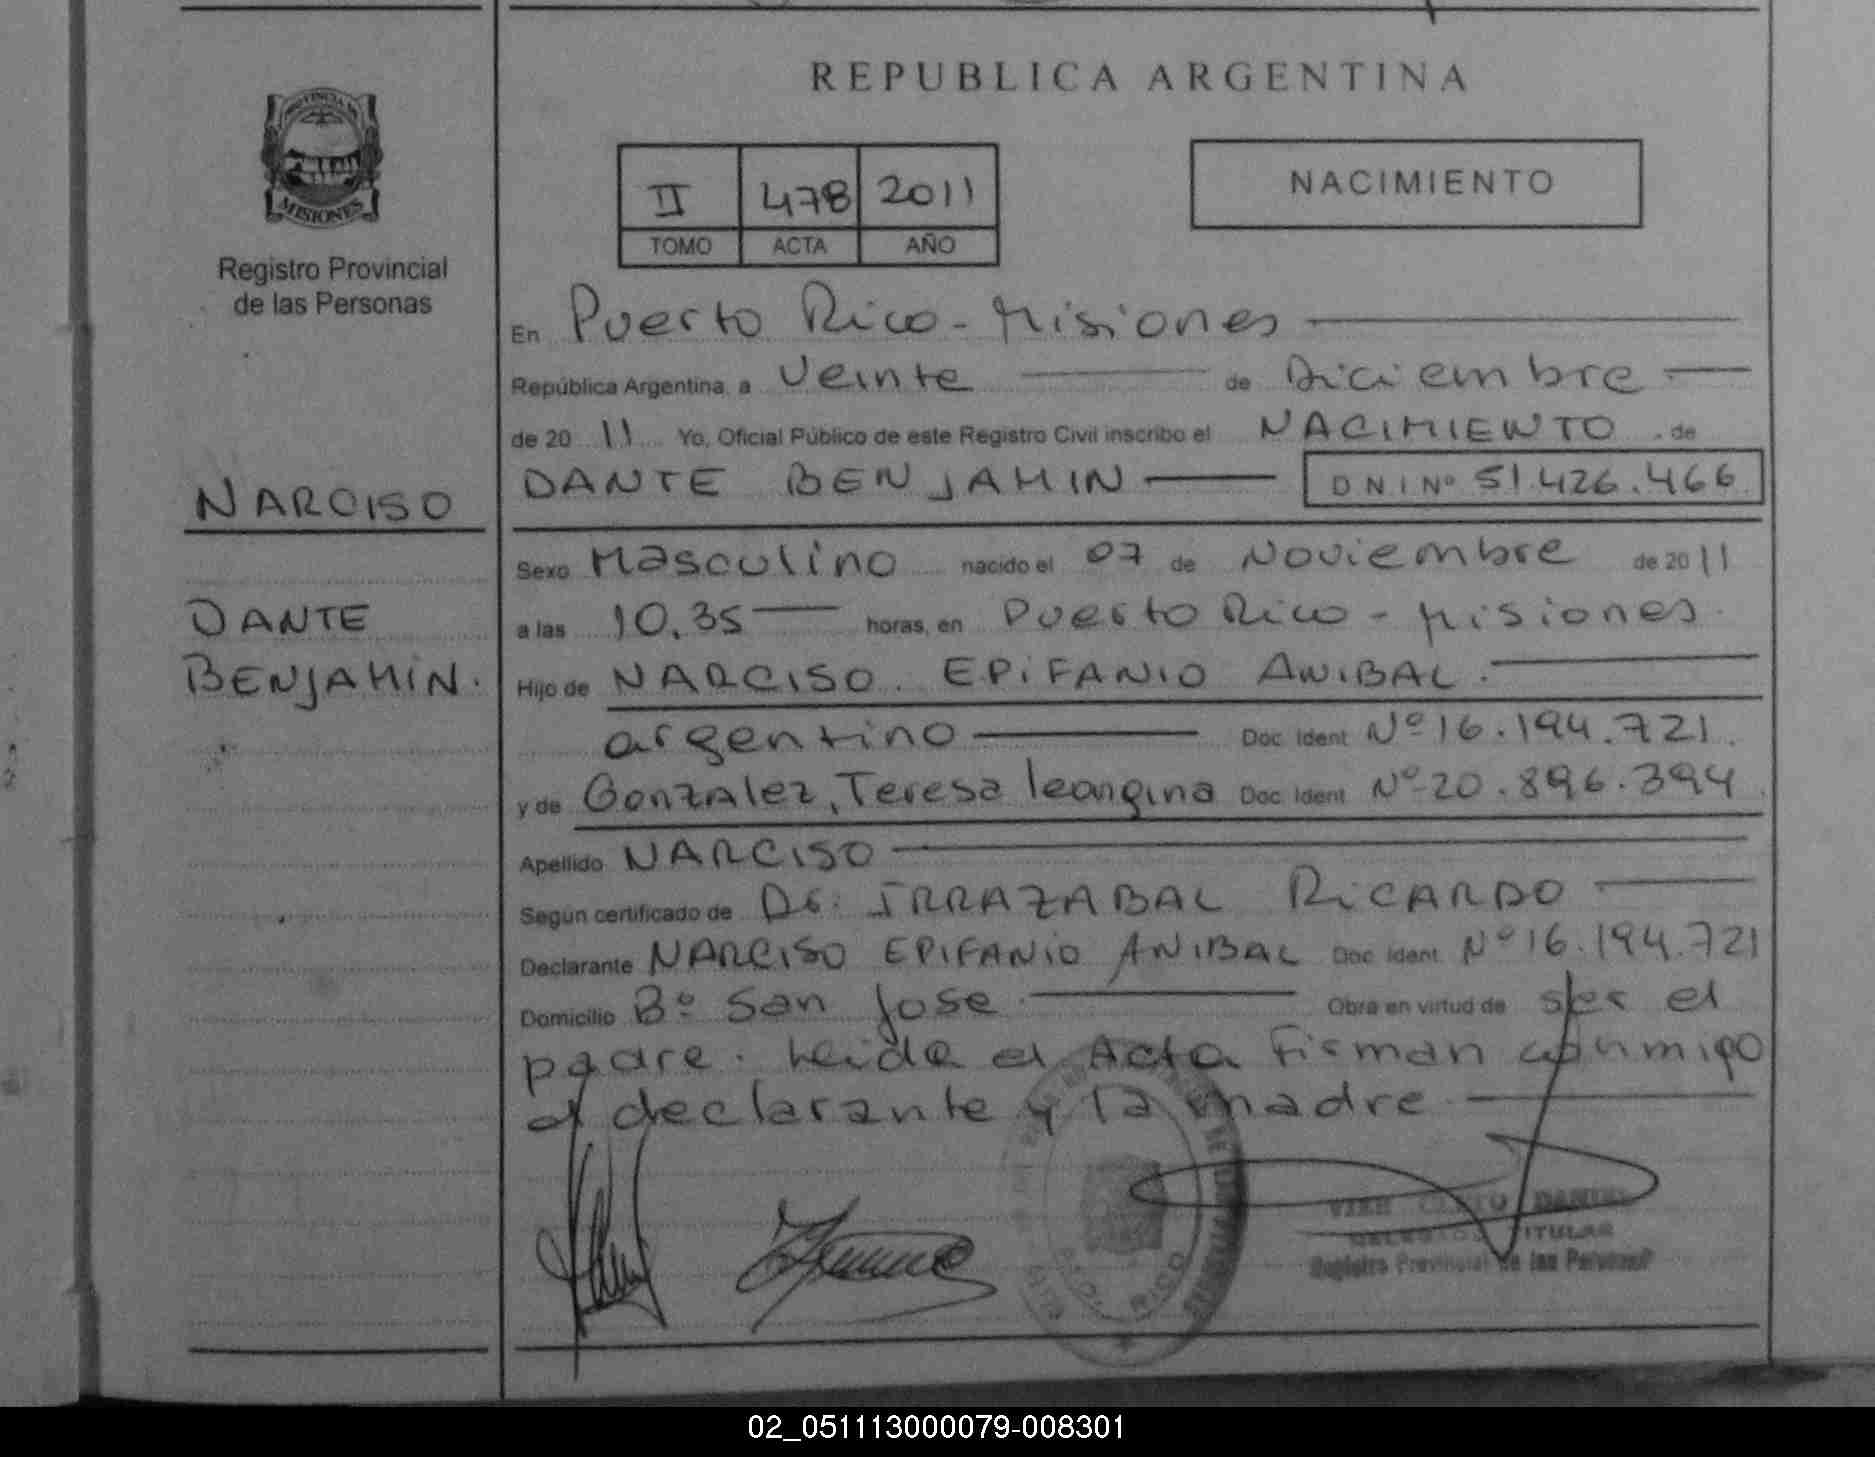 REPUBLICA ARGENTINA
PROVINCIA DE
MISIONES
Registro Provincial
de las Personas
II 478 2011
TOMO ACTA AÑO
NACIMIENTO
En Puerto Rico - Misiones
República Argentina, a Veinte de Diciembre
de 20 11 Yo, Oficial Público de este Registro Civil inscribo el NACIMIENTO de
NARCISO
DANTE BENJAMIN D N I Nº 51.426.466
Sexo Masculino nacido el 07 de Noviembre de 20 11
DANTE
a las 10.35 horas, en Puerto Rico - Misiones.
BENJAMIN.
Hijo de NARCISO. EPIFANIO ANIBAL.
argentino Doc. Ident. Nº 16.194.721.
y de Gonzalez, Teresa Doc. Ident. Nº 20.896.394
Apellido NARCISO
Según certificado de Dr. IRRAZABAL RICARDO
Declarante NARCISO EPIFANIO ANIBAL Doc. Ident. Nº 16.194.721
Domicilio Bº San Jose Obra en virtud de ser el
padre. Leida el Acta Firman conmigo
el declarante y la madre
DANIEL
TITULAR
Registro Provincial de las Personas
RICO
02_051113000079-008301